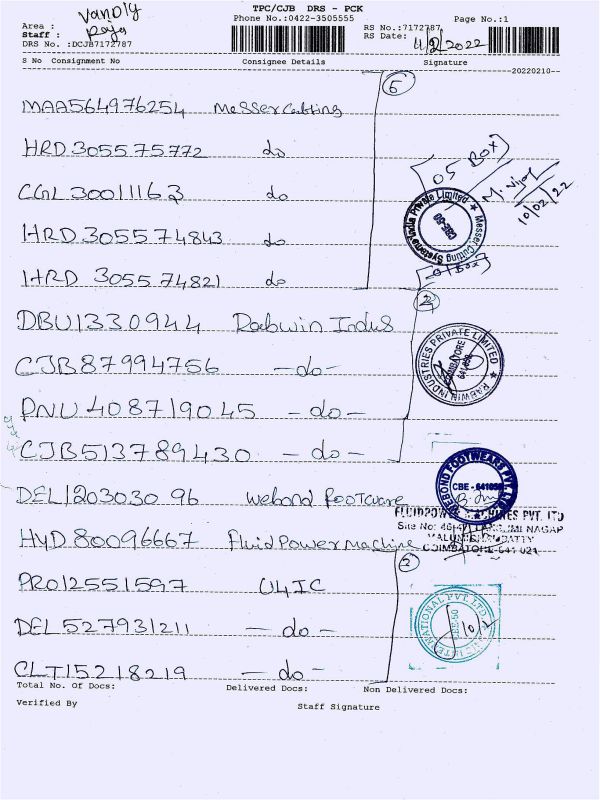 TPC/CJB DRS - PCK
Phone No.:0422-3505555
Page No.:1
Area :
Staff : Raja
DRS No. :DCJB7172787
RS No.:7172787
RS Date: 11/2/2022
S No Consignment No Consignee Details Signature
20220210
MAA564976254 Messer Cutting 5
HRD 305575772 do
CGL 30011163 do
HRD 305574843 do
HRD 305574821 do
05 BOX
M. Vijay
10/02/22
Messer Cutting Systems India Private Limited
DBU1330944 Rabwin Indus
CJB87994756 -do-
PNU 408719045 -do-
CJB513789430 -do-
RABWIN INDUSTRIES PRIVATE LIMITED
COIMBATORE
DEL120303096 Webond Footware
WEBOND FOOTWEARS PVT. LTD
CBE - 641050
HYD80096667 Fluid Power Machine
FLUIDPOWER MACHINES PVT. LTD
COIMBATORE-641 021
PRO12551597 U4IC
DEL527931211 -do-
CLT15218219 -do-
INTERNATIONAL PVT LTD
CBE-50
10/2
Total No. Of Docs: Delivered Docs: Non Delivered Docs:
Verified By Staff Signature